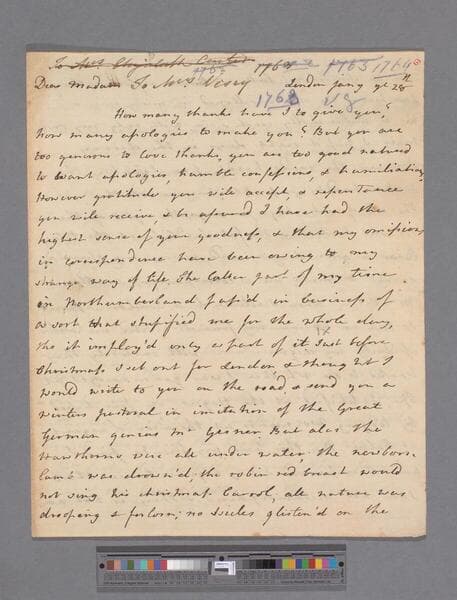 To Mrs Elizabeth Carter
1763 1764
Dear Madam To Mrs Vesey London Jany ye 28th
1768
How many thanks have I to give you?
how many apologies to make you? But you are
too generous to love thanks, you are too good natured
to want apologies, humble confessions, & humiliation,
However gratitude you will accept, & repentance
you will receive & be assured I have had the
highest sense of your goodness, & that my omissions
in correspondence have been owing to my
strange way of life. The latter part of my time
in Northumberland pass'd in business of
a sort that stupified me for the whole day,
tho it employ'd only a part of it Just before
Christmass I set out for London, & thought I
would write to you on the road & send you a
winter pastoral in imitation of the Great
German genius Mr Gesner. But alas the
Hawthorns were all under water, the newborn
lamb was drown'd, the robin red breast would
not sing his christmass Carrol, all nature was
drooping & forlorn; no Icicles glisten'd on the